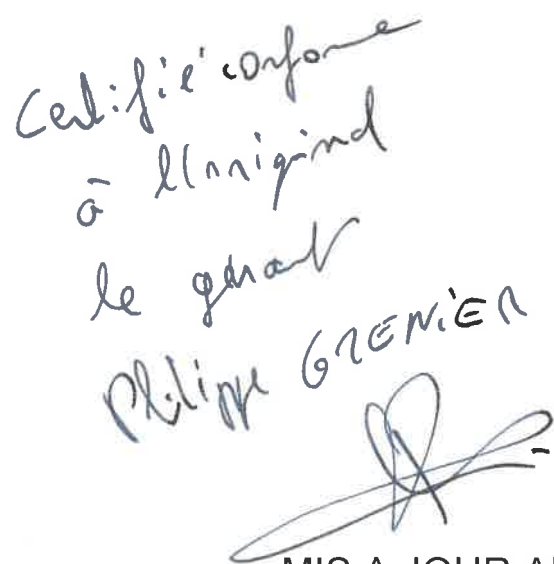 Certifié conforme
à l'original
le gérant
Philippe GRENIER
MIS A JOUR A